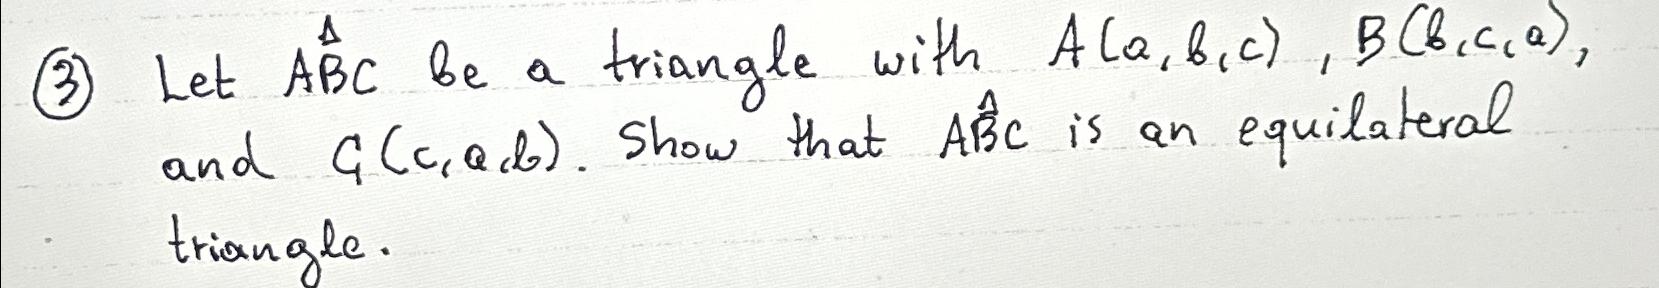 ③ Let AB̂C be a triangle with A(a,b,c), B(b,c,a),
and C(c,a,b). Show that AB̂C is an equilateral
triangle.